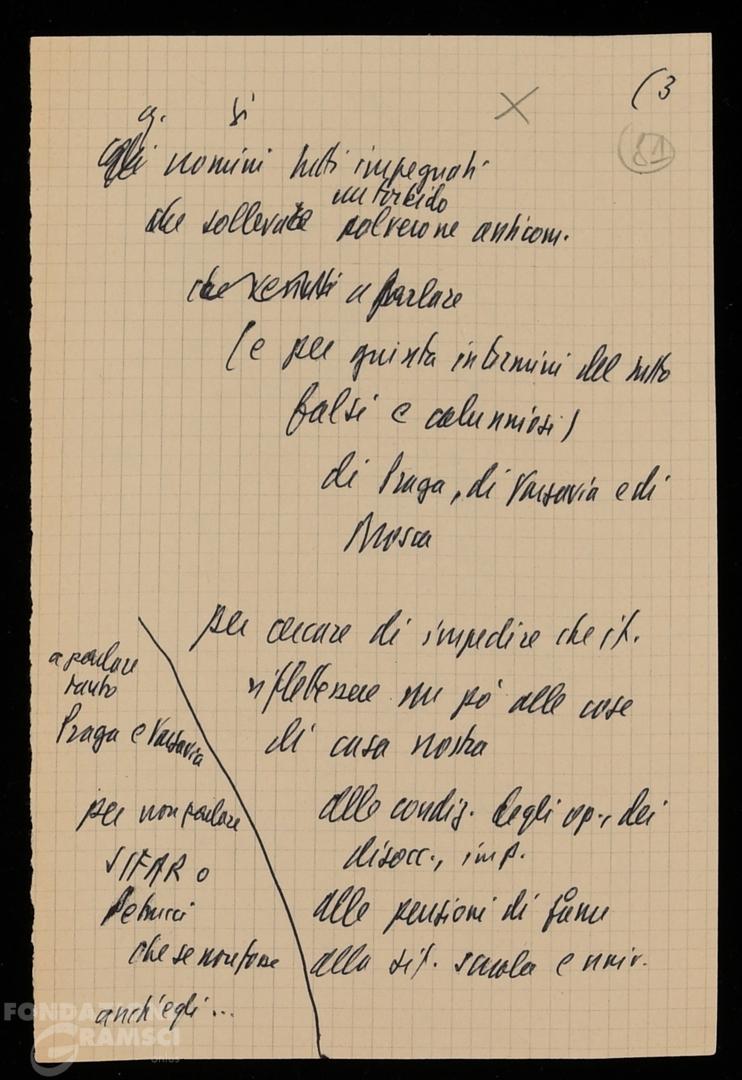 (3
(81)
q. si
gli uomini tutti impegnati
un torbido
che sollevate polverone anticom.
a parlare
(e per giunta in termini del tutto
falsi e calunniosi)
di Praga, di Varsavia e di
Mosca
per cercare di impedire che it.
riflettessere un pò alle cose
di casa nostra
alle condiz. degli op., dei
disocc., imp.
alle pensioni di fame
alla sit. scuola e univ.
a parlare
tanto
Praga e Varsavia
per non parlare
SIFAR o
Petrucci
che se non fosse
anch'egli ...
FONDAZIONE
GRAMSCI
onlus